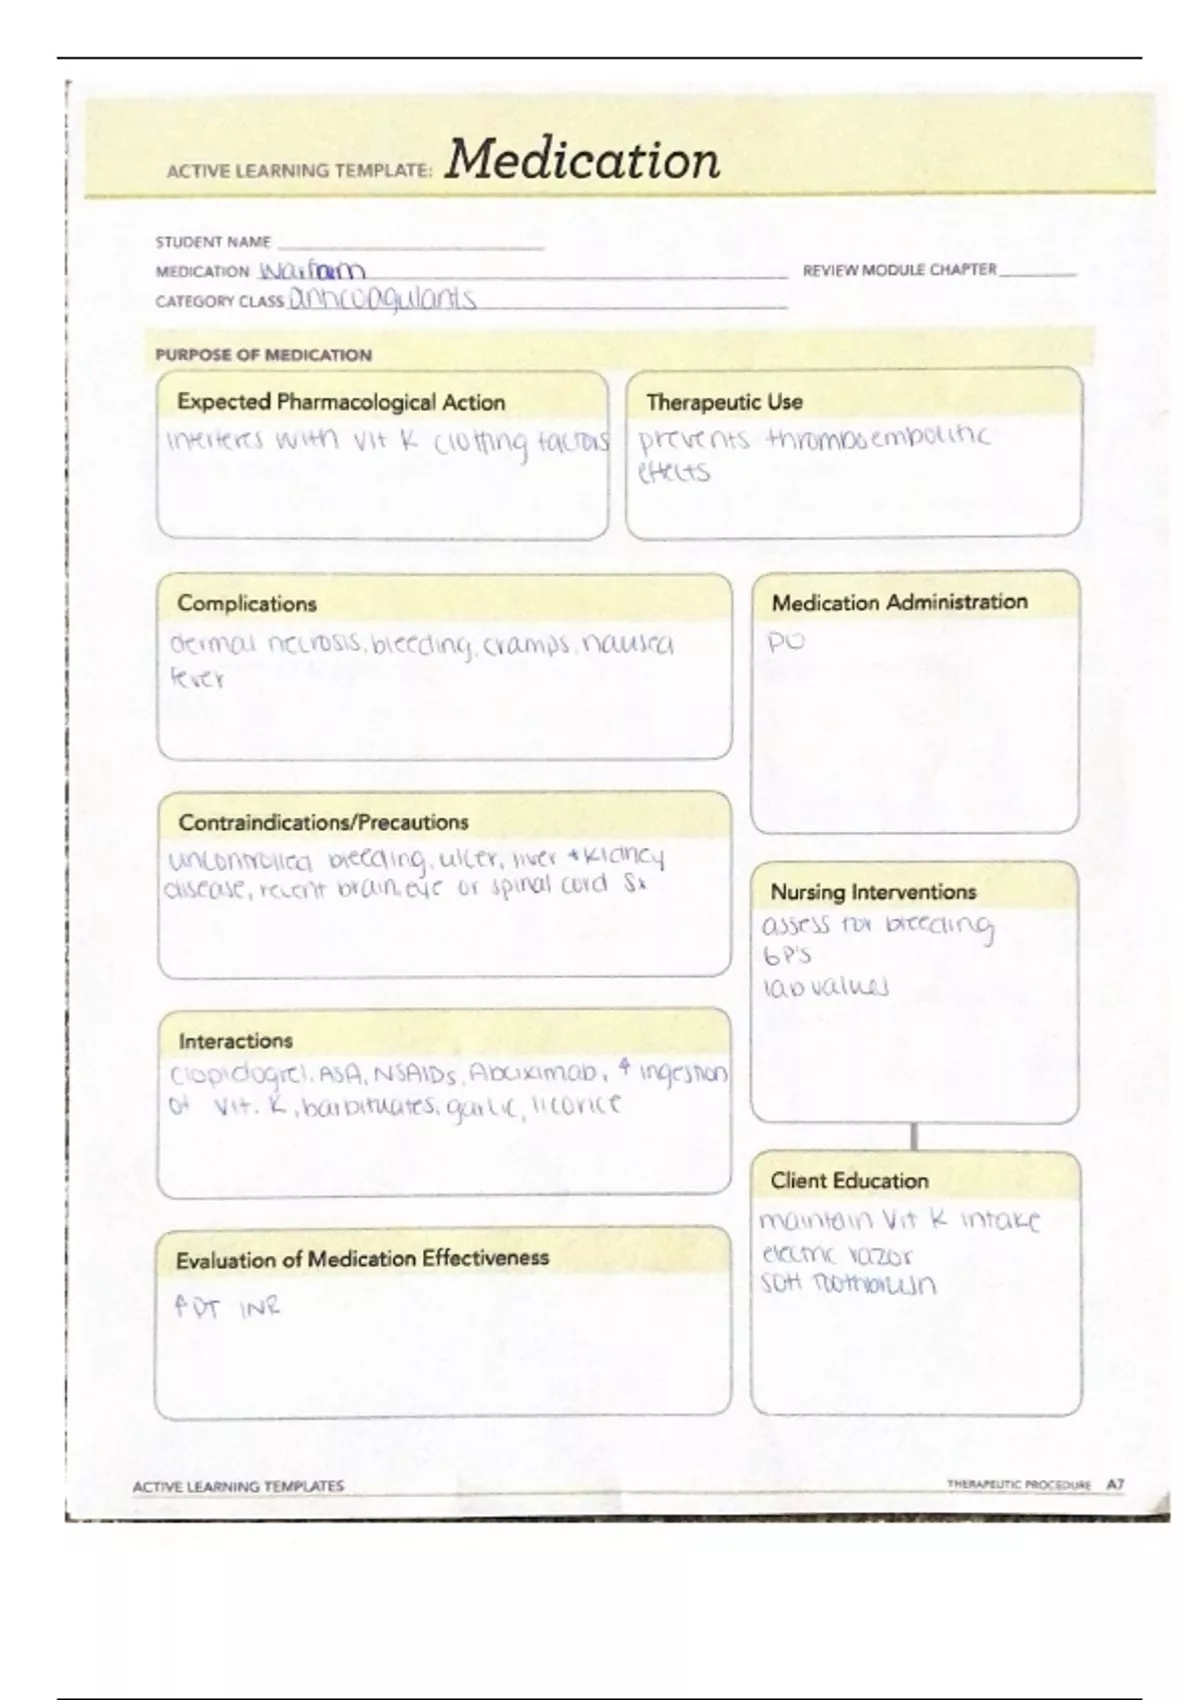 ACTIVE LEARNING TEMPLATE: Medication
STUDENT NAME
MEDICATION Warfarin
REVIEW MODULE CHAPTER
CATEGORY CLASS anticoagulants
PURPOSE OF MEDICATION
Expected Pharmacological Action
interferes with vit K clotting factors
Therapeutic Use
prevents thromboembolitic
effects
Complications
dermal necrosis, bleeding, cramps, nausea
fever
Medication Administration
PO
Contraindications/Precautions
uncontrolled bleeding, ulcer, liver + kidney
disease, recent brain, eye or spinal cord Sx
Nursing Interventions
assess for bleeding
6P'S
lab values
Interactions
Clopidogrel, ASA, NSAIDs, Abciximab, ↑ ingestion
of Vit. K, barbituates, garlic, licorice
Client Education
maintain Vit K intake
electric razor
soft toothbrush
Evaluation of Medication Effectiveness
↑ PT INR
ACTIVE LEARNING TEMPLATES
THERAPEUTIC PROCEDURE A7